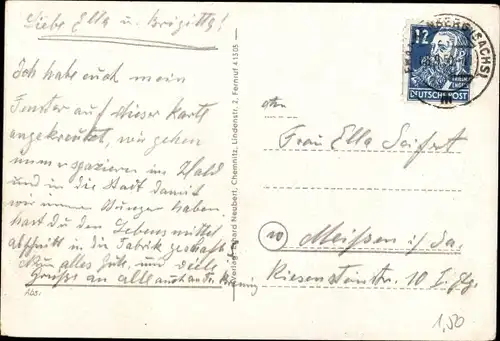 Liebe Ella u. Brigitte!
Ich habe euch mein
Fenster auf dieser Karte
angekreuzt, wir gehen
immer spazieren im Wald
und in die Stadt damit
wir immer Hunger haben.
hast du den Lebensmittel
abschnitt in die Fabrik geschafft
Nun alles Gute und viele
Grüße an alle auch an der
Verlag Erhard Neubert, Chemnitz, Lindenstr. 2, Fernruf 41505
12
DEUTSCHE POST
BERG (SACHS)
Frau Ella Seifert
Meißen i/Sa.
Riesensteinstr. 10 I. Etg.
1,50